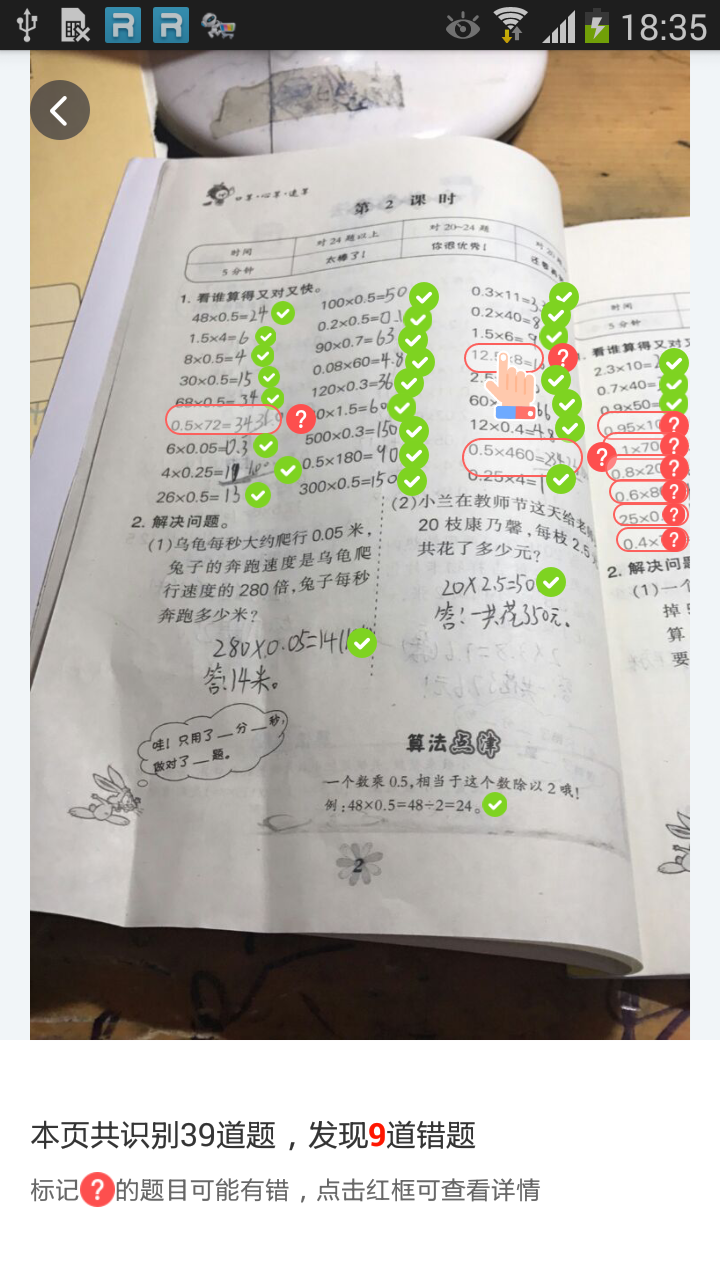 18:35
口算·心算·速算
第 2 课时
时间
对 24 题以上
对 20~24 题
5 分钟
太棒了!
你很优秀!
1. 看谁算得又对又快。
48×0.5=24
1.5×4=6
8×0.5=4
30×0.5=15
68×0.5=34
0.5×72=
6×0.05=0.3
4×0.25=
26×0.5=13
100×0.5=50
0.2×0.5=0.1
90×0.7=63
0.08×60=4.8
120×0.3=36
0×1.5=60
500×0.3=150
0.5×180=90
300×0.5=150
0.3×11=3.3
0.2×40=8
1.5×6=9
12.5×8=
2.5
60×
12×0.4=4.8
0.5×460=
0.25×4=1
2. 解决问题。
(1)乌龟每秒大约爬行 0.05 米,
兔子的奔跑速度是乌龟爬
行速度的 280 倍,兔子每秒
奔跑多少米?
280×0.05=14
答:14米。
(2)小兰在教师节这天给老师
20 枝康乃馨,每枝 2.5
共花了多少元?
20×2.5=50
答:一共花350元。
哇!只用了__分__秒,
做对了__题。
算法点津
一个数乘 0.5,相当于这个数除以 2 哦!
例:48×0.5=48÷2=24。
2
时间
5 分钟
看谁算得又对又
2.3×10=
0.7×40=
0.9×50=
0.95×10
.1×70
0.8×20
0.6×8
25×0.
0.4×
2. 解决问题
(1)一个
掉
算
要
本页共识别39道题，发现9道错题
标记?的题目可能有错，点击红框可查看详情